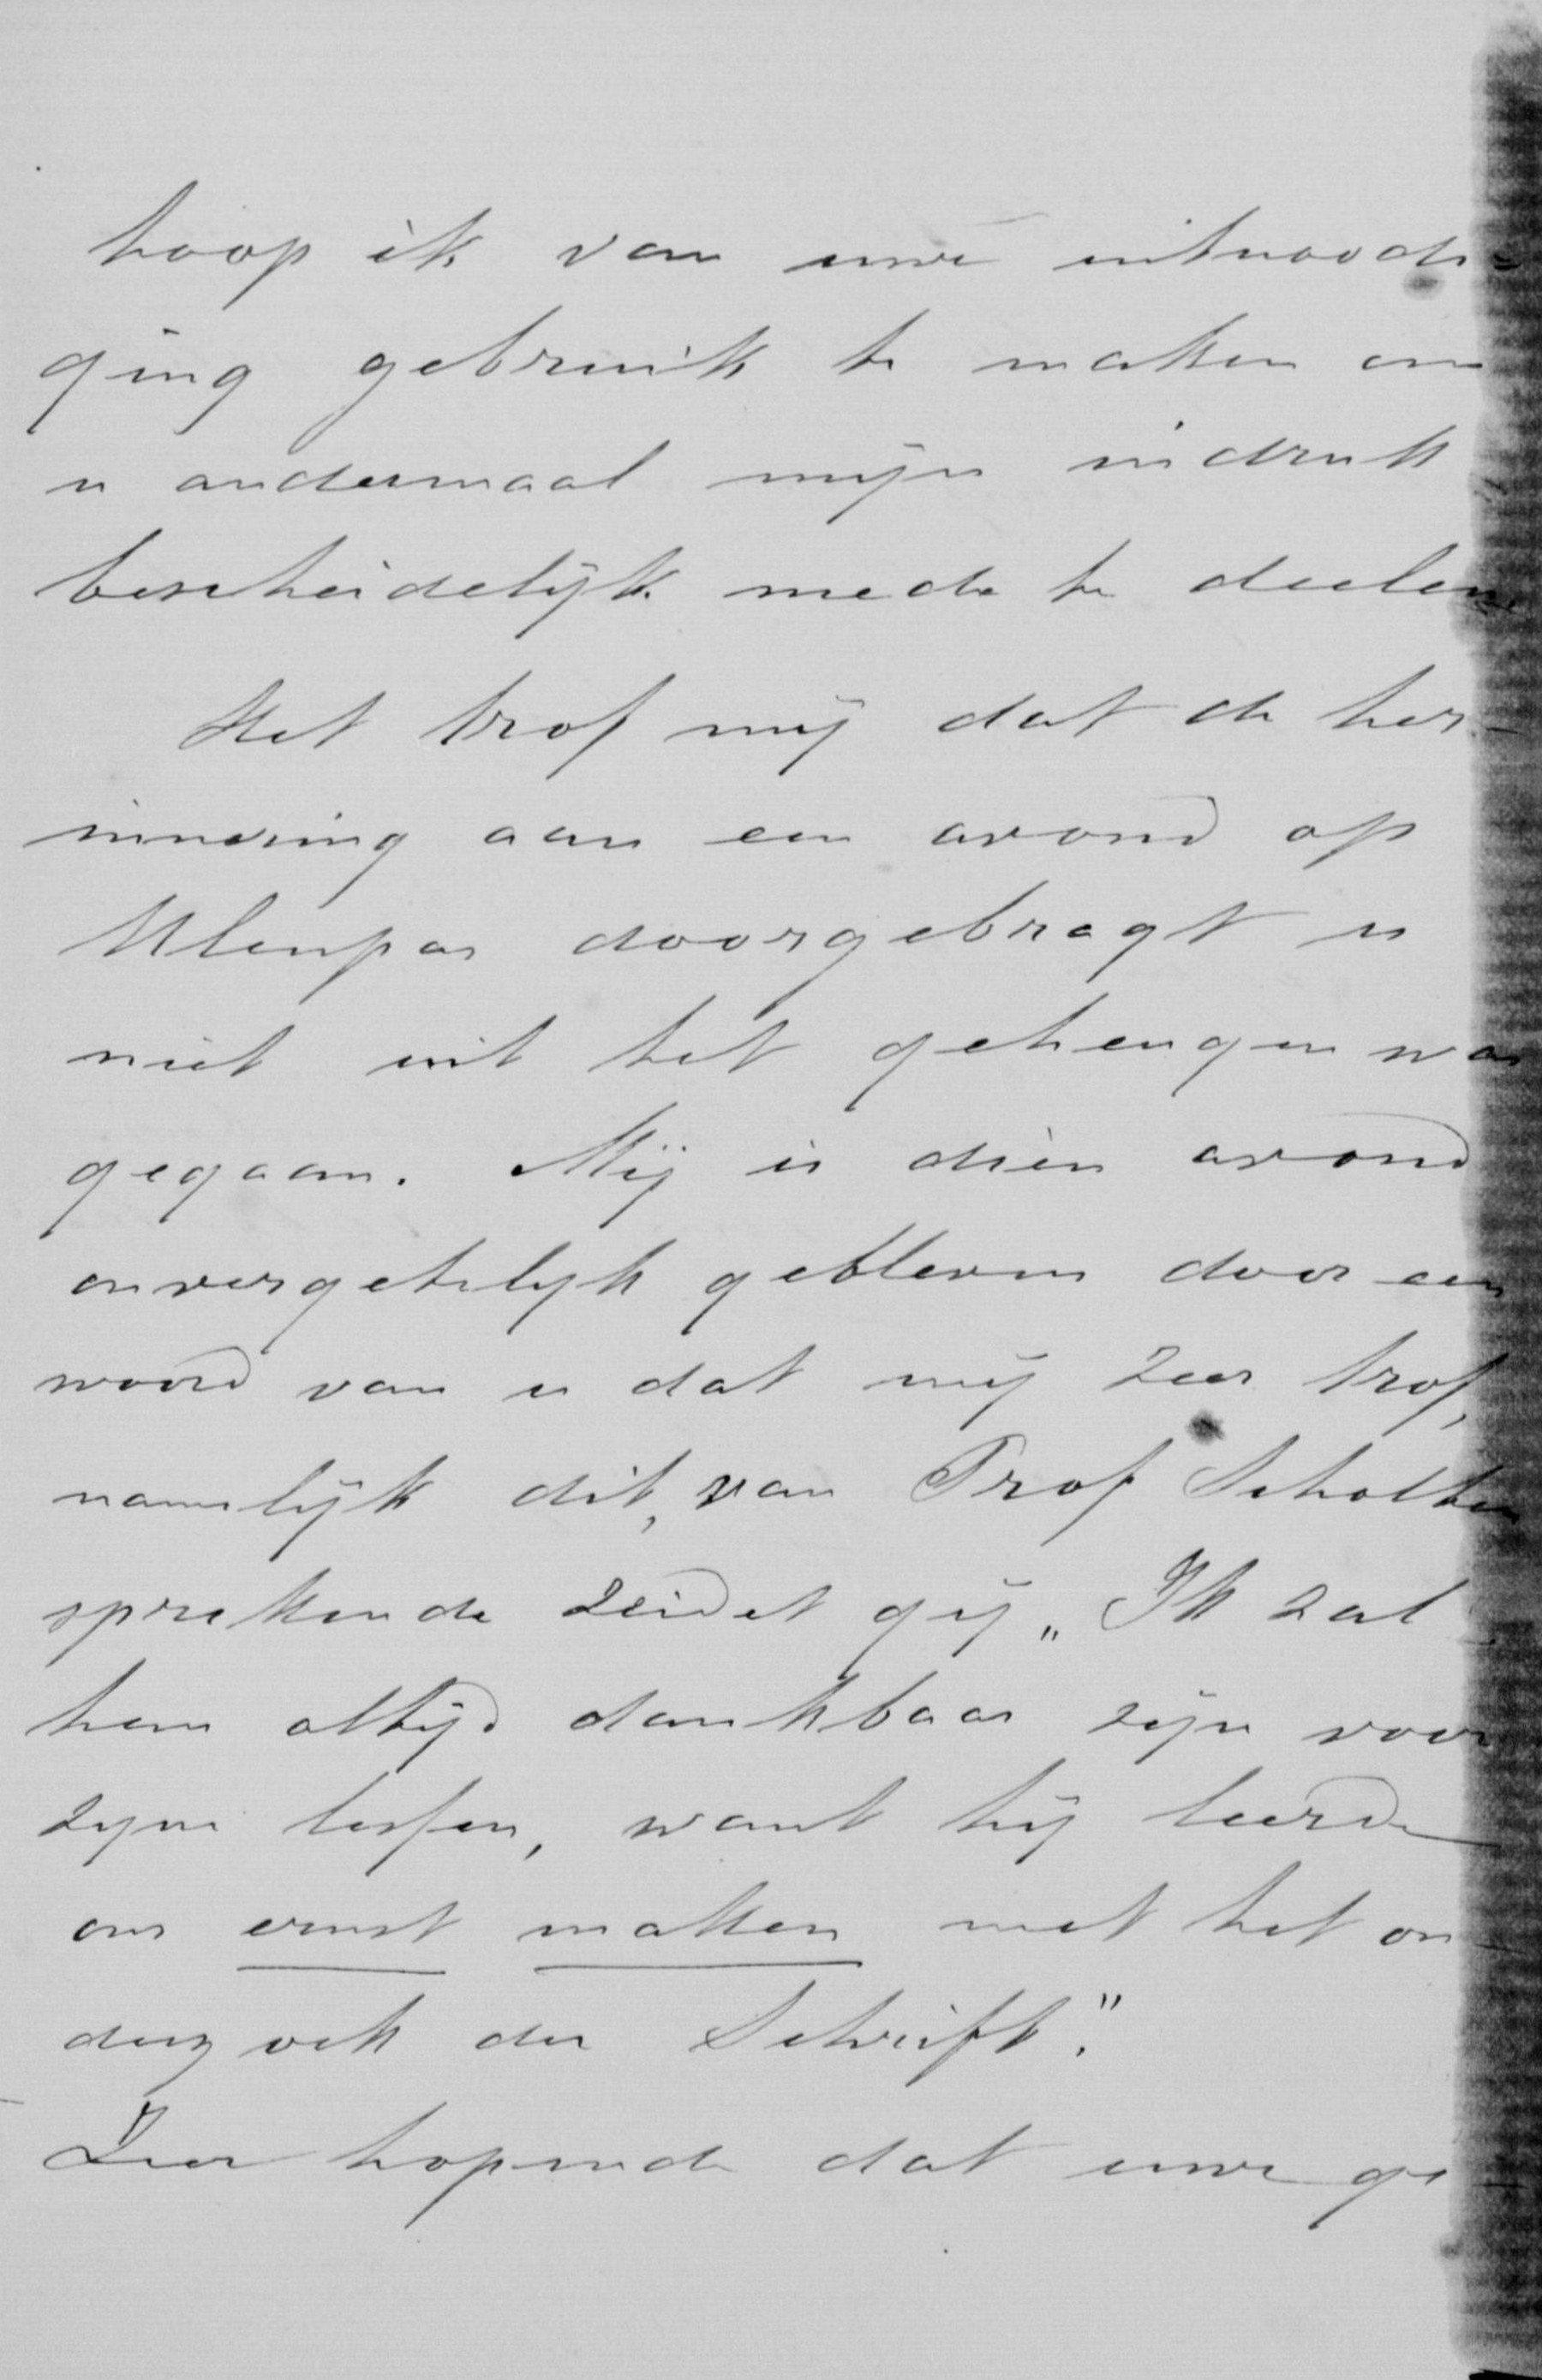 hoop ik van uwe uitnoodi=
ging gebruik te maken om
u andermaal mijn indruk
bescheidelijk mede te deelen
Het trof mij dat de her-
innering aan een avond op
Ulenpas doorgebragt u
niet uit het geheugen was
gegaan. Mij is dien avond
onvergetelijk gebleven door een
woord van u dat mij zeer trof,
namelijk dit, van Prof Scholten
sprekende zeidet gij „Ik zal
hem altijd dankbaar zijn voor
zijne lessen, want hij leerde
ons ernst maken met het on-
derzoek der Schrift."
Zeer hopende dat uwe ge-